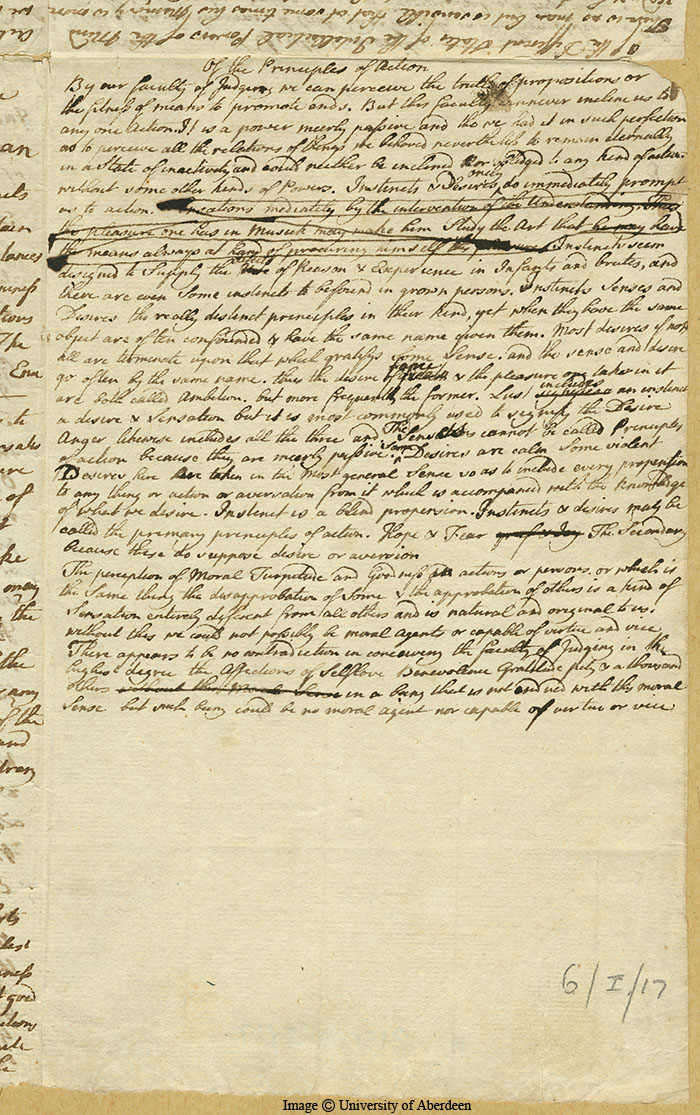 Of the Different State of the Intellectual Powers of the Mind
Of the Principles of Action
By our faculty of Judging we can perceive the truth of propositions or
the fitness of means to promote ends. But this faculty can never incline us to
any one Action. It is a power meerly passive and tho we had it in such perfection
as to perceive all the relations of things we behoved nevertheless to remain eternally
in a State of inactivity and could neither be inclined nor obliged to any kind of action
without some other kinds of Powers. Instincts & Desires only do immediately prompt
us to action. Sensations mediately by the intervention of the Understanding. Thus
the pleasure one has in Musick may make him Study the Art that he may have
the means always at hand of procuring himself the Instincts seem
designed to Supply the of Reason & Experience in Infants and brutes, and
there are even Some instincts to be found in grown persons. Instincts Senses and
Desires tho really distinct principles in their kind, yet when they have the same
object are often confounded & have the same name given them. Most desires if not
all are terminate upon that which gratifys some Sense. and the sense and desire
go often by the same name. thus the desire of fame & the pleasure one takes in it
are both called Ambition. but more frequently the former. Lust includes an instinct
a desire & Sensation but it is most commonly used to signify the Desire
Anger likewise includes all the three and The Senses cannot be called Principles
of action because they are meerly passive. Some Desires are calm Some violent
Desires here are taken in the most general Sense so as to include every propension
to any thing or action or aversation from it which is accompanied with the knowledge
of what we desire. Instinct is a blind propension. Instincts & desires may be
called the primary principles of action. Hope & Fear grief & Joy The Secondary
because these do suppose desire or aversion
The perception of Moral Turpitude and Goodness in actions or persons. or which is
the Same thing the disapprobation of Some & the approbation of others is a kind of
Sensation entirely different from all others and is natural and original to us.
without this we could not possibly be moral agents or capable of virtue and vice
There appears to be no contradiction in conceiving the faculty of Judging in the
highest degree the Affections of Selflove Benevolence Gratitude pity & a thousand
others without this Moral Sense in a being that is not endued with this moral
Sense but such being could be no moral agent nor capable of virtue or vice
6/I/17
Image © University of Aberdeen